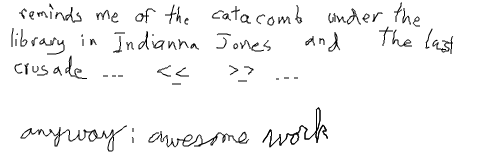 reminds me of the catacomb under the
library in Indianna Jones and the last
crusade ... << >> ...
anyway: awesome work